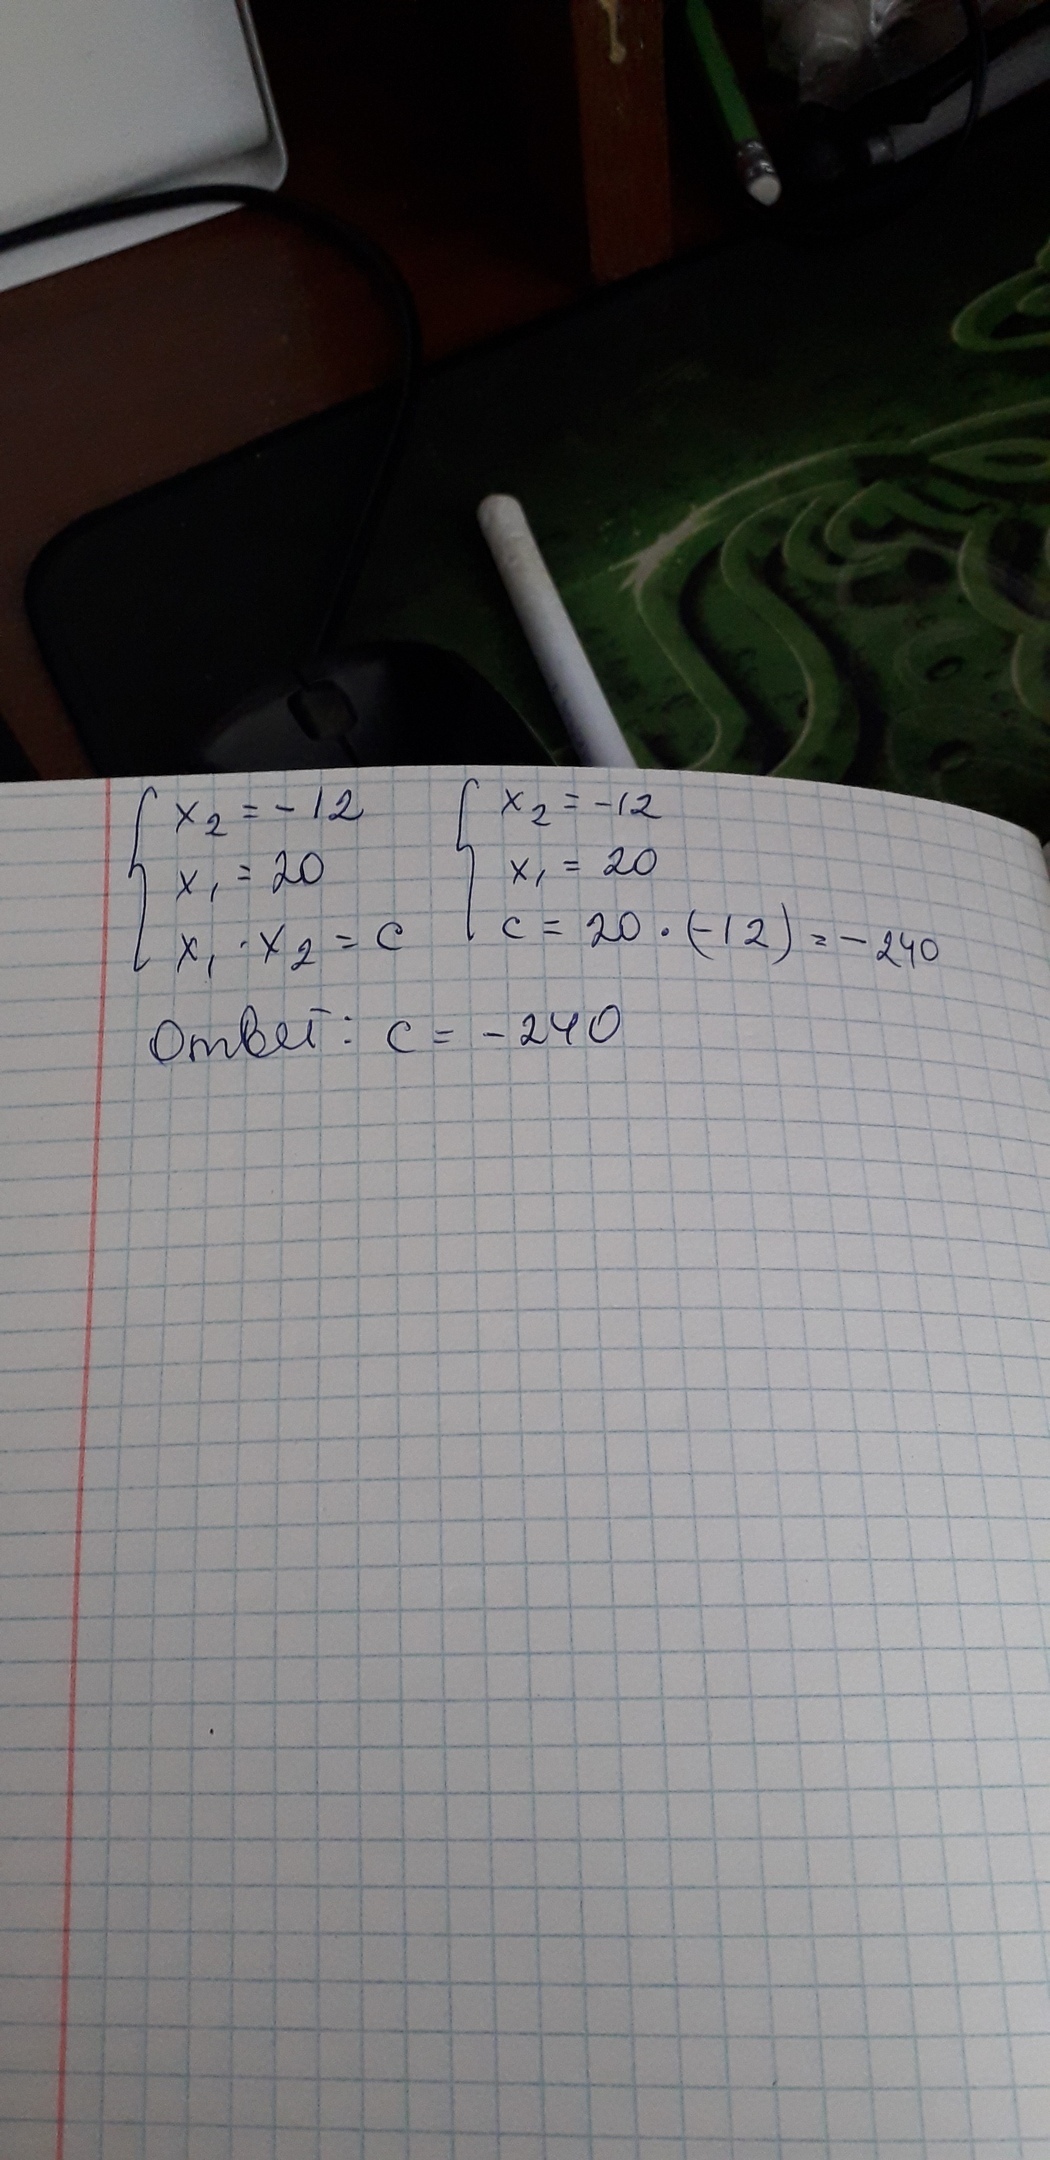 x₂ = -12
x₁ = 20
x₁ · x₂ = c
x₂ = -12
x₁ = 20
c = 20 · (-12) = -240
Ответ: c = -240